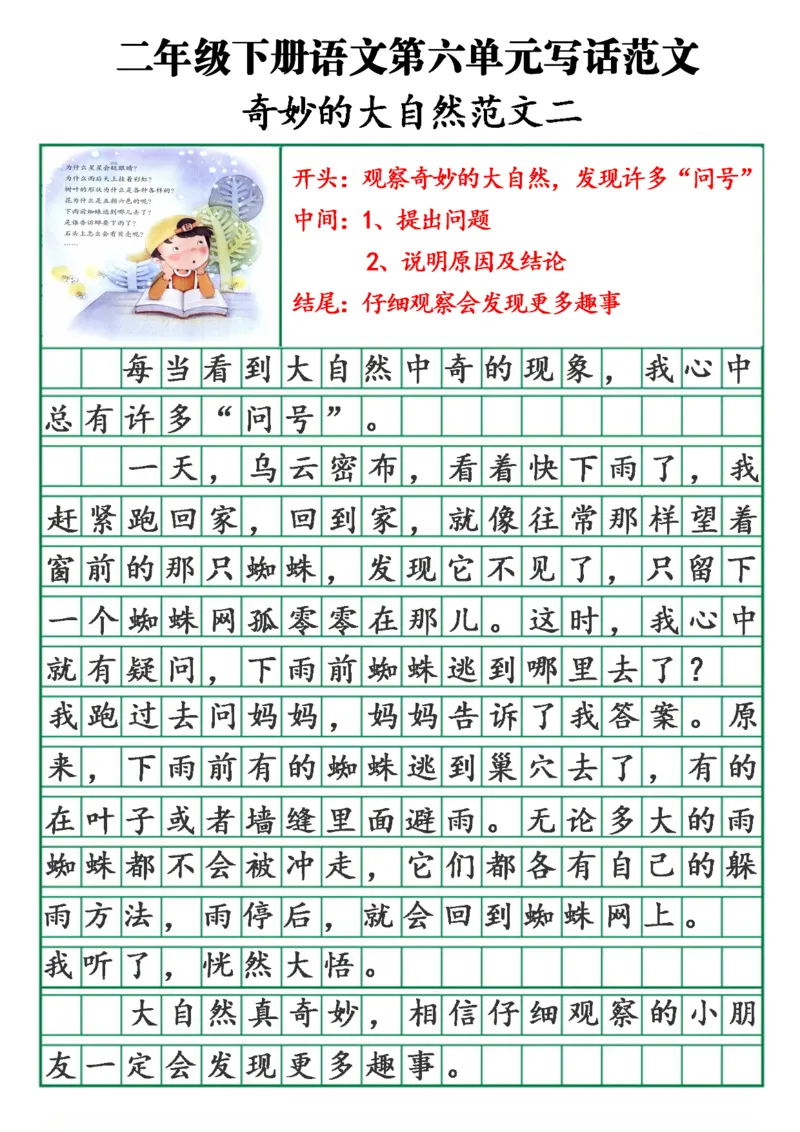 二年级下册语文第六单元写话范文
奇妙的大自然范文二
为什么星星会眨眼睛？
为什么雨后天上挂着彩虹？
树叶的形状为什么是各种各样的？
花为什么是五颜六色的呢？
下雨前蜘蛛逃到哪儿去了？
是谁告诉哪要下雨了？
石头上怎么会有贝壳呢？
……
开头：观察奇妙的大自然，发现许多“问号”
中间：1、提出问题
2、说明原因及结论
结尾：仔细观察会发现更多趣事
每当看到大自然中奇的现象，我心中
总有许多“问号”。
一天，乌云密布，看着快下雨了，我
赶紧跑回家，回到家，就像往常那样望着
窗前的那只蜘蛛，发现它不见了，只留下
一个蜘蛛网孤零零在那儿。这时，我心中
就有疑问，下雨前蜘蛛逃到哪里去了？
我跑过去问妈妈，妈妈告诉了我答案。原
来，下雨前有的蜘蛛逃到巢穴去了，有的
在叶子或者墙缝里面避雨。无论多大的雨
蜘蛛都不会被冲走，它们都各有自己的躲
雨方法，雨停后，就会回到蜘蛛网上。
我听了，恍然大悟。
大自然真奇妙，相信仔细观察的小朋
友一定会发现更多趣事。